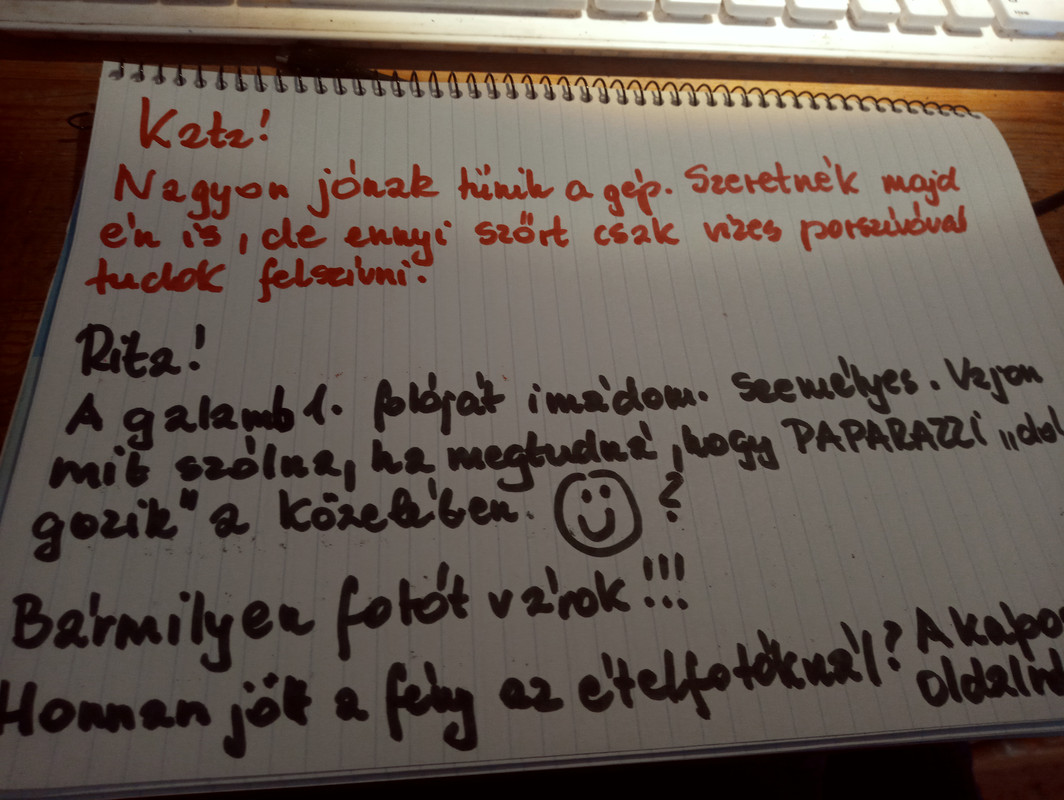 Kata!
Nagyon jónak tűnik a gép. Szeretnék majd
én is, de ennyi szőrt csak vizes porszívóval
tudok felszívni.
Rita!
A galamb 1. fotóját imádom. Személyes. Vajon
mit szólna, ha megtudná, hogy PAPARAZZI „dol
gozik" a közelében. ?
Bármilyen fotót várok!!!
Honnan jött a fény az ételfotóknál? A kapo
oldalint